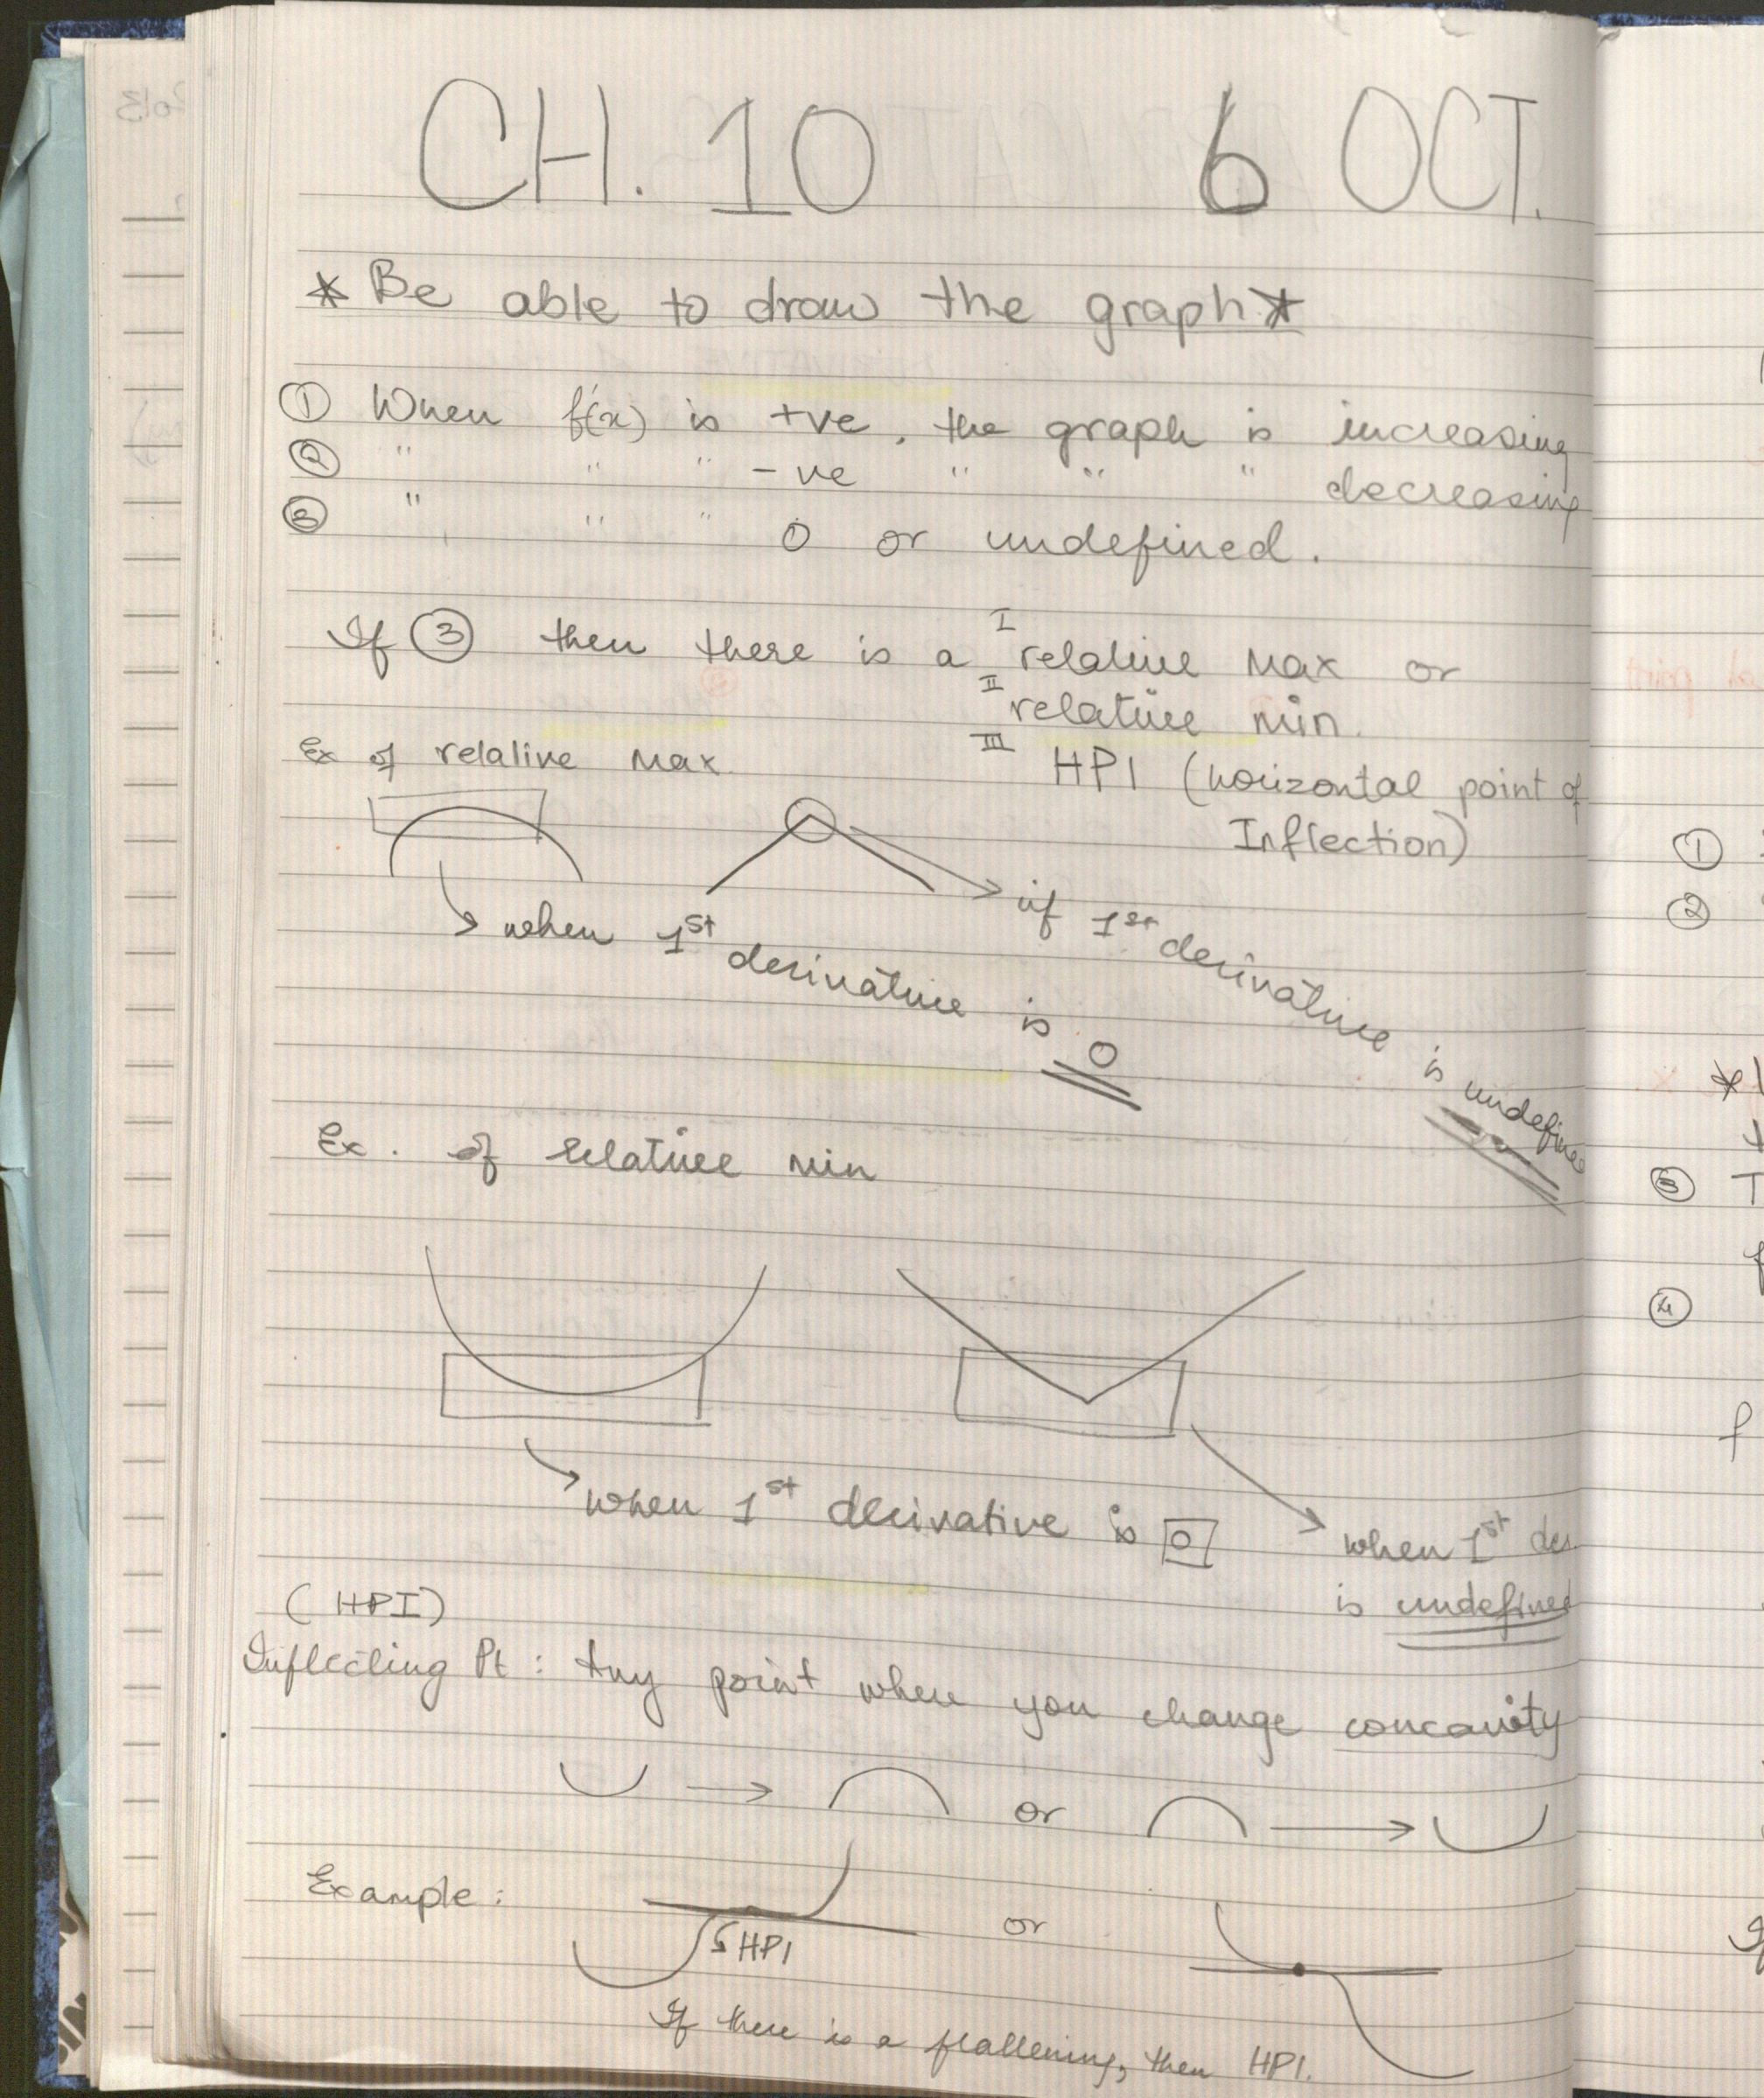 CH. 10 6 OCT.
* Be able to draw the graph *
① When f'(x) is +ve, the graph is increasing
② " " " -ve " " " decreasing
③ " " " 0 or undefined.
If ③ then there is a I relative max or
II relative min.
Ex of relative max
III HPI (horizontal point of
Inflection)
when 1st derivative is 0
if 1st derivative is undefined
Ex. of relative min
when 1st derivative is 0
when 1st der.
is undefined
(HPI)
Inflecting Pt : Any point where you change concavity
or
Example :
HPI
or
If there is a flattening, then HPI.
①
②
③ T
④
f